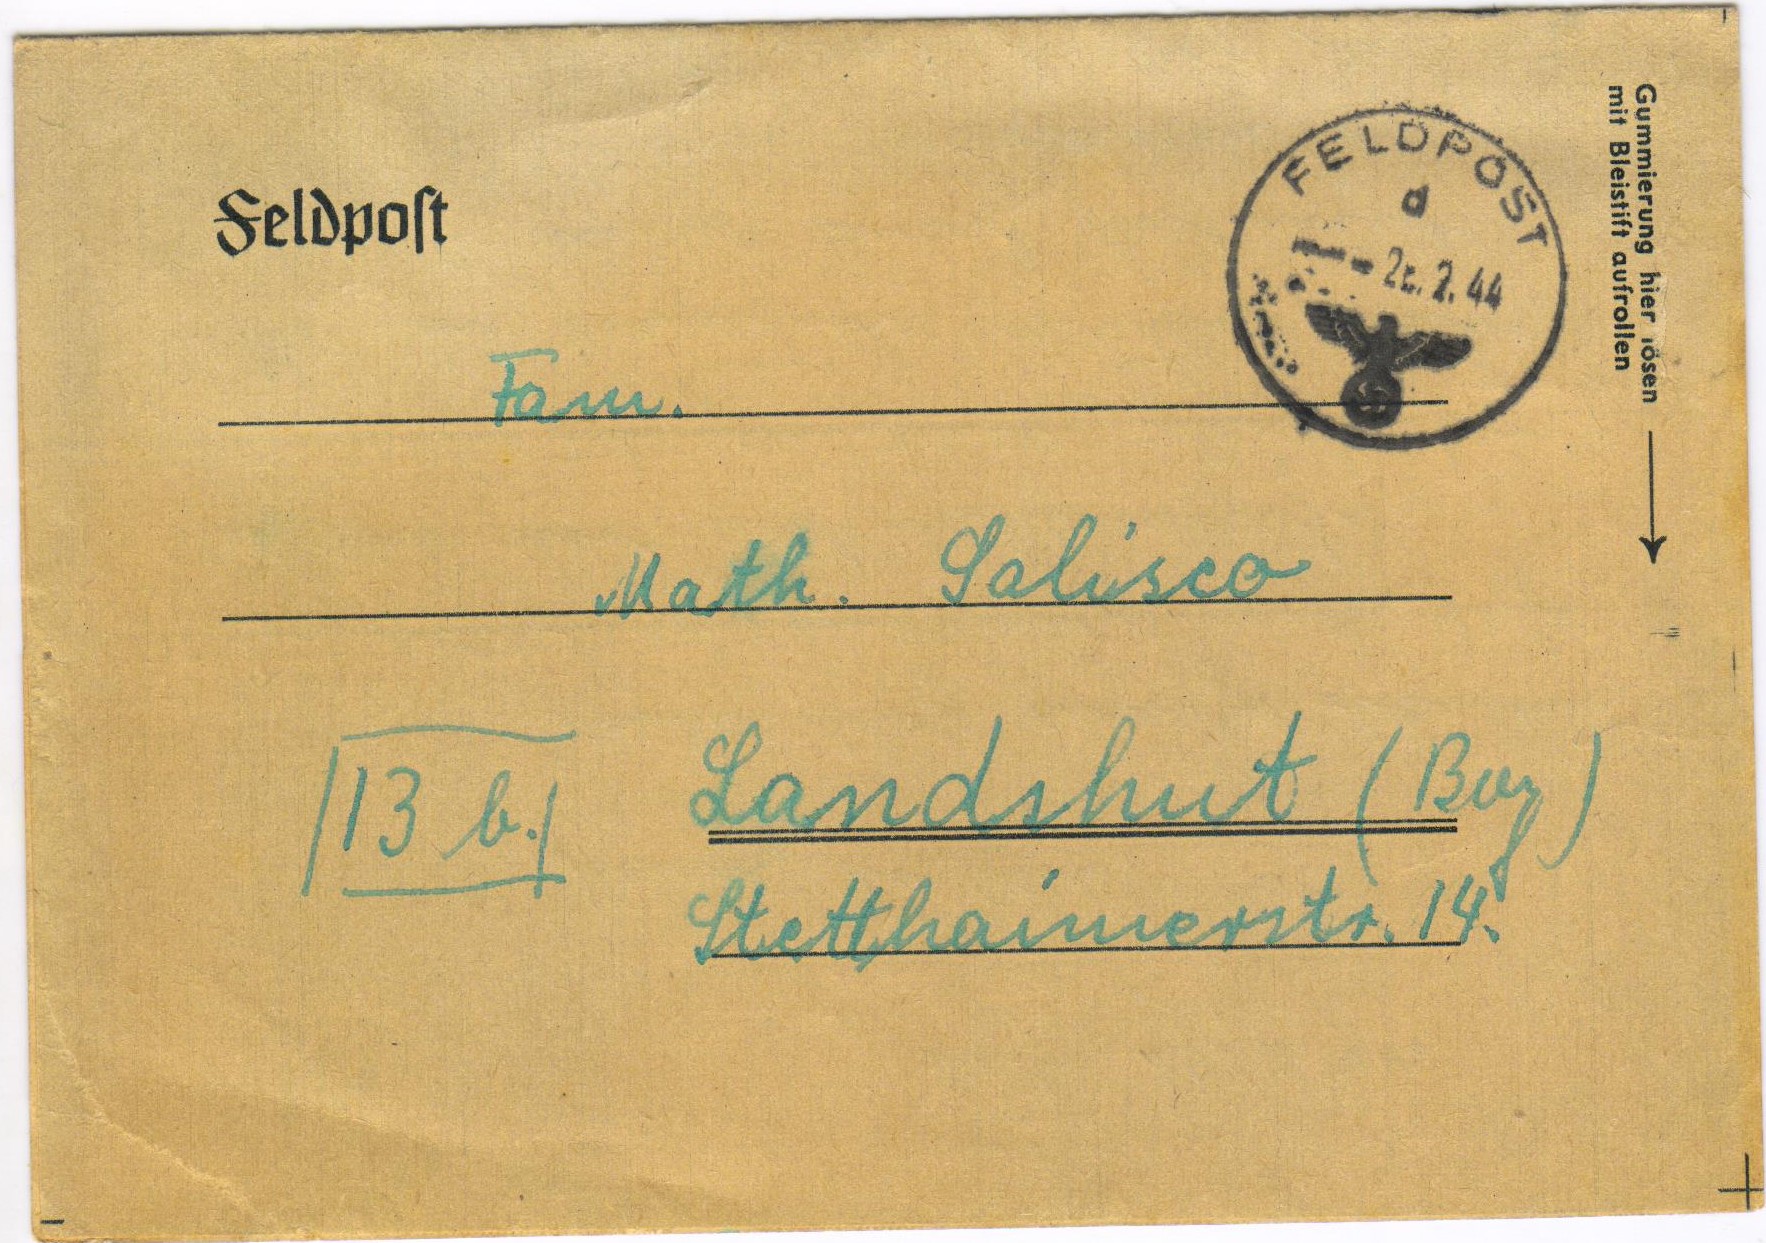 Feldpost
FELDPOST
d
2. 44
Gummierung hier lösen
mit Bleistift aufrollen
Fam.
Math. Salisco
13 b.
Landshut (Bay)
Stetthaimerstr. 14.